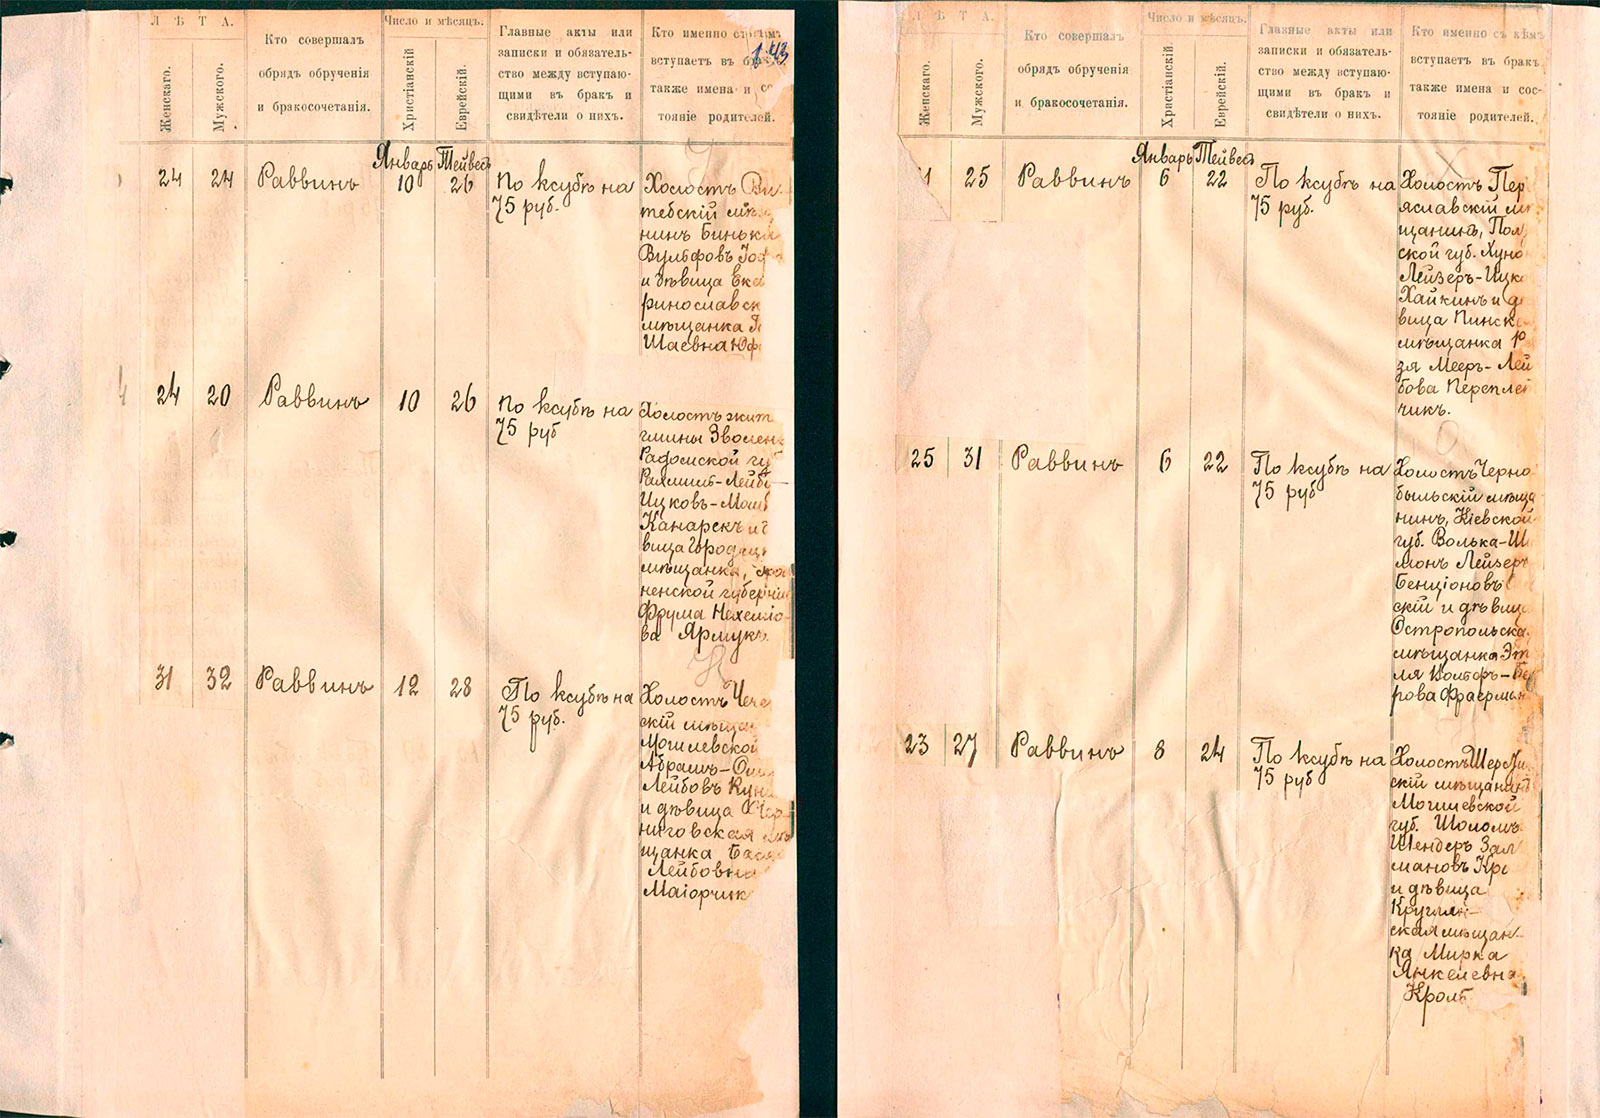 ЛѢТА.
Женскаго.
Мужского.
Кто совершалъ
обрядъ обрученія
и бракосочетанія.
Число и мѣсяцъ.
Христіанскій
Еврейскій.
Главные акты или
записки и обязатель-
ство между вступаю-
щими въ бракъ и
свидѣтели о нихъ.
Кто именно съ кѣмъ
вступаетъ въ
также имена и
тояніе родителей.
Январь Тейвесъ
24 24 Раввинъ 10 26
По ксубѣ на
75 руб.
Холостъ Ви
тебскій мѣщ
нинъ Бинька
Вульфовъ
и дѣвица Ека
ринославск
мѣщанка
Шаевна Юф
24 20 Раввинъ 10 26
По ксубѣ на
75 руб
Холостъ жит
гмины Зволен
Радомской гу
Рахмиль-Лейб
Ицковъ-Мош
Канарекъ и
вица Городищ
мѣщанка,
ненской губерніи
Фрума Нехеміо-
ва Ярмукъ.
31 32 Раввинъ 12 28
По ксубѣ на
75 руб.
Холостъ Чече
скій мѣща
Могилевской
Абрамъ-
Лейбовъ Кун
и дѣвица Чер-
ниговская мѣ
щанка Бася
Лейбовна
Маіорчик
ѢТА.
Женскаго.
Мужского.
Кто совершалъ
обрядъ обрученія
и бракосочетанія.
Число и мѣсяцъ.
Христіанскій
Еврейскій.
Главные акты или
записки и обязатель-
ство между вступаю-
щими въ бракъ и
свидѣтели о нихъ.
Кто именно съ кѣмъ
вступаетъ въ бракъ
также имена и сос-
тояніе родителей.
Январь Тейвесъ
25 Раввинъ 6 22
По ксубѣ на
75 руб.
Холостъ Пер
яславскій мѣ
щанинъ, Пол
ской губ. Хуно
Лейзеръ-Ицко
Хайкинъ и д
вица Пинск
мѣщанка
зя Мееръ-Лей
бова Переплет
чикъ.
25 31 Раввинъ 6 22
По ксубѣ на
75 руб
Холостъ Черно
быльскій мѣща
нинъ, Кіевской
губ. Волька-Ши
монъ Лейзеръ
Бенціоновъ
скій и дѣвица
Остропольска
мѣщанка Эт
ля Вольфъ-Бе
рова Фраерман
23 27 Раввинъ 8 24
По ксубѣ на
75 руб
Холостъ
скій мѣщанинъ
Могилевской
губ. Шоломъ
Шендеръ Зал
мановъ
и дѣвица
Круглян-
ская мѣщан-
ка Мирка
Янкелевна
Кроль